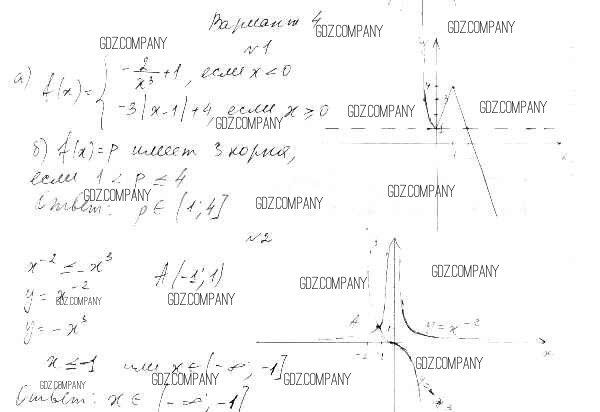 Вариант 4
GDZ.COMPANY GDZ.COMPANY GDZ.COMPANY
№1
а) f(x) = { -2/x³ + 1, если x < 0
-3|x-1| + 4, если x ≥ 0
GDZ.COMPANY GDZ.COMPANY GDZ.COMPANY
б) f(x) = p имеет 3 корня,
если 1 < p ≤ 4
GDZ.COMPANY GDZ.COMPANY GDZ.COMPANY
Ответ: p ∈ (1; 4]
№2
x⁻² ≤ -x³ A(-1; 1)
GDZ.COMPANY GDZ.COMPANY
y = x⁻²
GDZ.COMPANY GDZ.COMPANY
y = -x³
A
y = x⁻²
x
x ≤ -1 или x ∈ (-∞; -1]
GDZ.COMPANY GDZ.COMPANY GDZ.COMPANY GDZ.COMPANY
Ответ: x ∈ (-∞; -1]